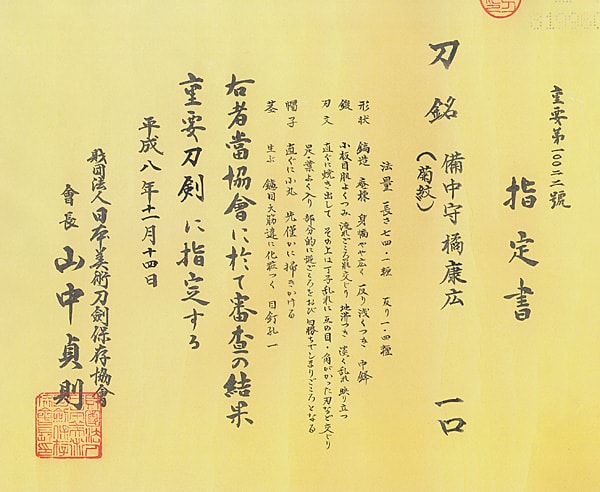 重要第一〇〇二二號
指定書
刀 銘 備中守橘康広 一口
(菊紋)
法量 長さ七四・一糎 反り一・四糎
形状 鎬造 庵棟 身幅やや広く 反り浅くつき 中鋒
鍛 小板目肌よくつみ 流れごころ肌交じり 地沸つき 淡く乱れ映り立つ
刃文 直ぐに焼き出して その上は丁子乱れに 互の目・角がかった刃など交じり
足・葉よく入り 部分的に逆ごころをおび 匂勝ちでしまりごころとなる
帽子 直ぐに小丸 先僅かに掃きかける
茎 生ぶ 鑢目大筋違に化粧つく 目釘孔一
右者當協會に於て審査の結果
重要刀剣に指定する
平成八年十一月十四日
財団法人日本美術刀劍保存協會
會長 山中貞則